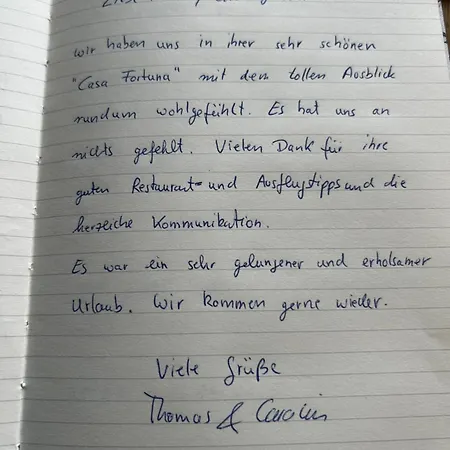 wir haben uns in ihrer sehr schönen
"Casa Fortuna" mit dem tollen Ausblick
rundum wohlgefühlt. Es hat uns an
nichts gefehlt. Vielen Dank für ihre
guten Restaurant- und Ausflugstipps und die
herzliche Kommunikation.
Es war ein sehr gelungener und erholsamer
Urlaub. Wir kommen gerne wieder.
Viele Grüße
Thomas & Carolin